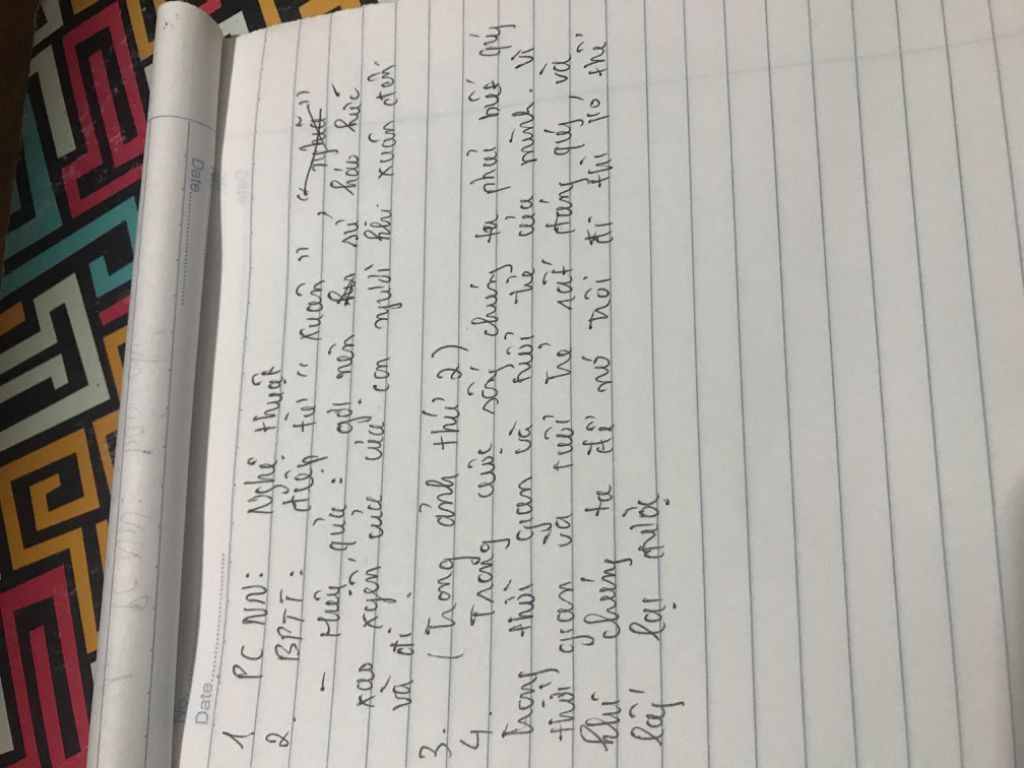 No:
Date
Date
1 PC NN: Nghệ thuật
2. BPTT: điệp từ "xuân", "người"
- Hiệu quả: gợi nên sự háo hức
xao xuyến của của con người khi xuân đến
và đi.
3. (Trong ảnh thứ 2)
4. Trong cuộc sống chúng ta phải biết quý
trọng thời gian và tuổi trẻ của mình. Vì
thời gian và tuổi trẻ rất đáng quý, và
khi chúng ta để nó trôi đi thì ko thể
lấy lại nữa